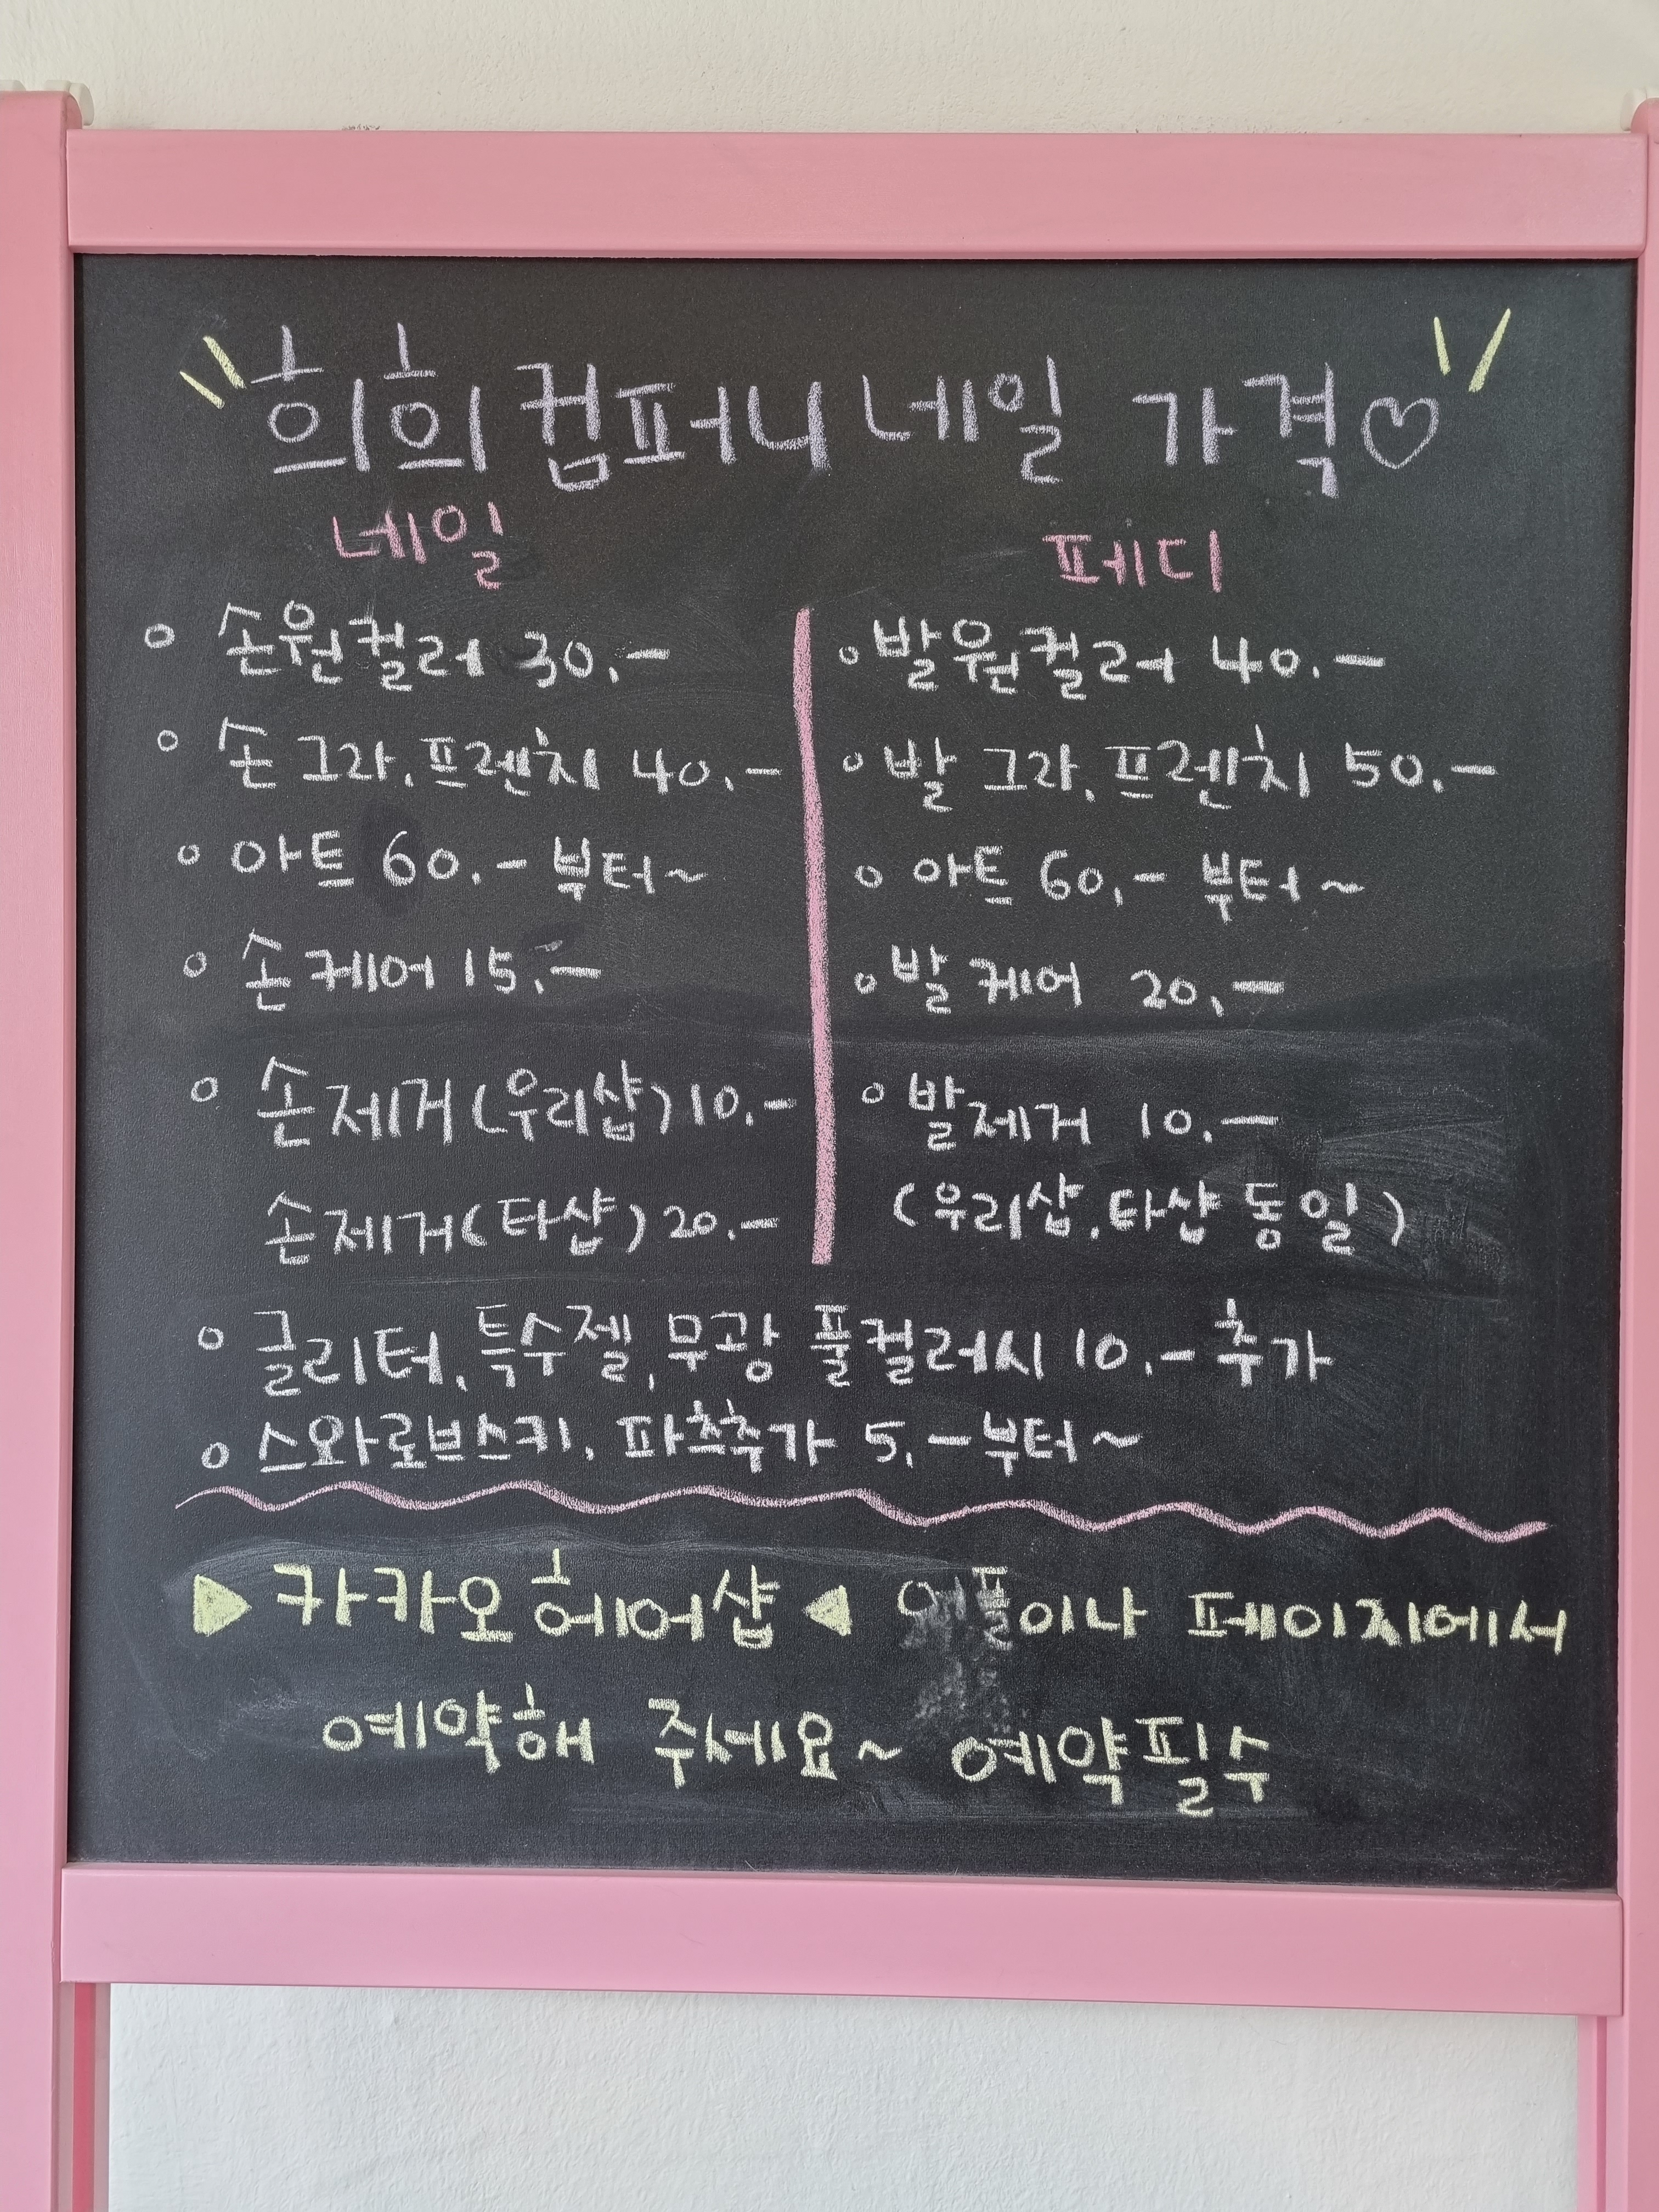 희희컴퍼니네일 가격♡
네일
◦ 손원컬러 30.-
◦ 손 그라, 프렌치 40.-
◦ 아트 60.- 부터~
◦ 손 케어 15.-
◦ 손 제거(우리샵) 10.-
손제거(타샵) 20.-
페디
◦ 발원컬러 40.-
◦ 발 그라, 프렌치 50.-
◦ 아트 60.- 부터~
◦ 발 케어 20.-
◦ 발제거 10.-
(우리샵, 타샵 동일)
◦ 글리터, 특수젤, 무광 풀컬러시 10.- 추가
◦ 스와로브스키, 파츠추가 5.- 부터~
▶ 카카오 헤어샵 ◀ 어플이나 페이지에서
예약해 주세요~ 예약필수